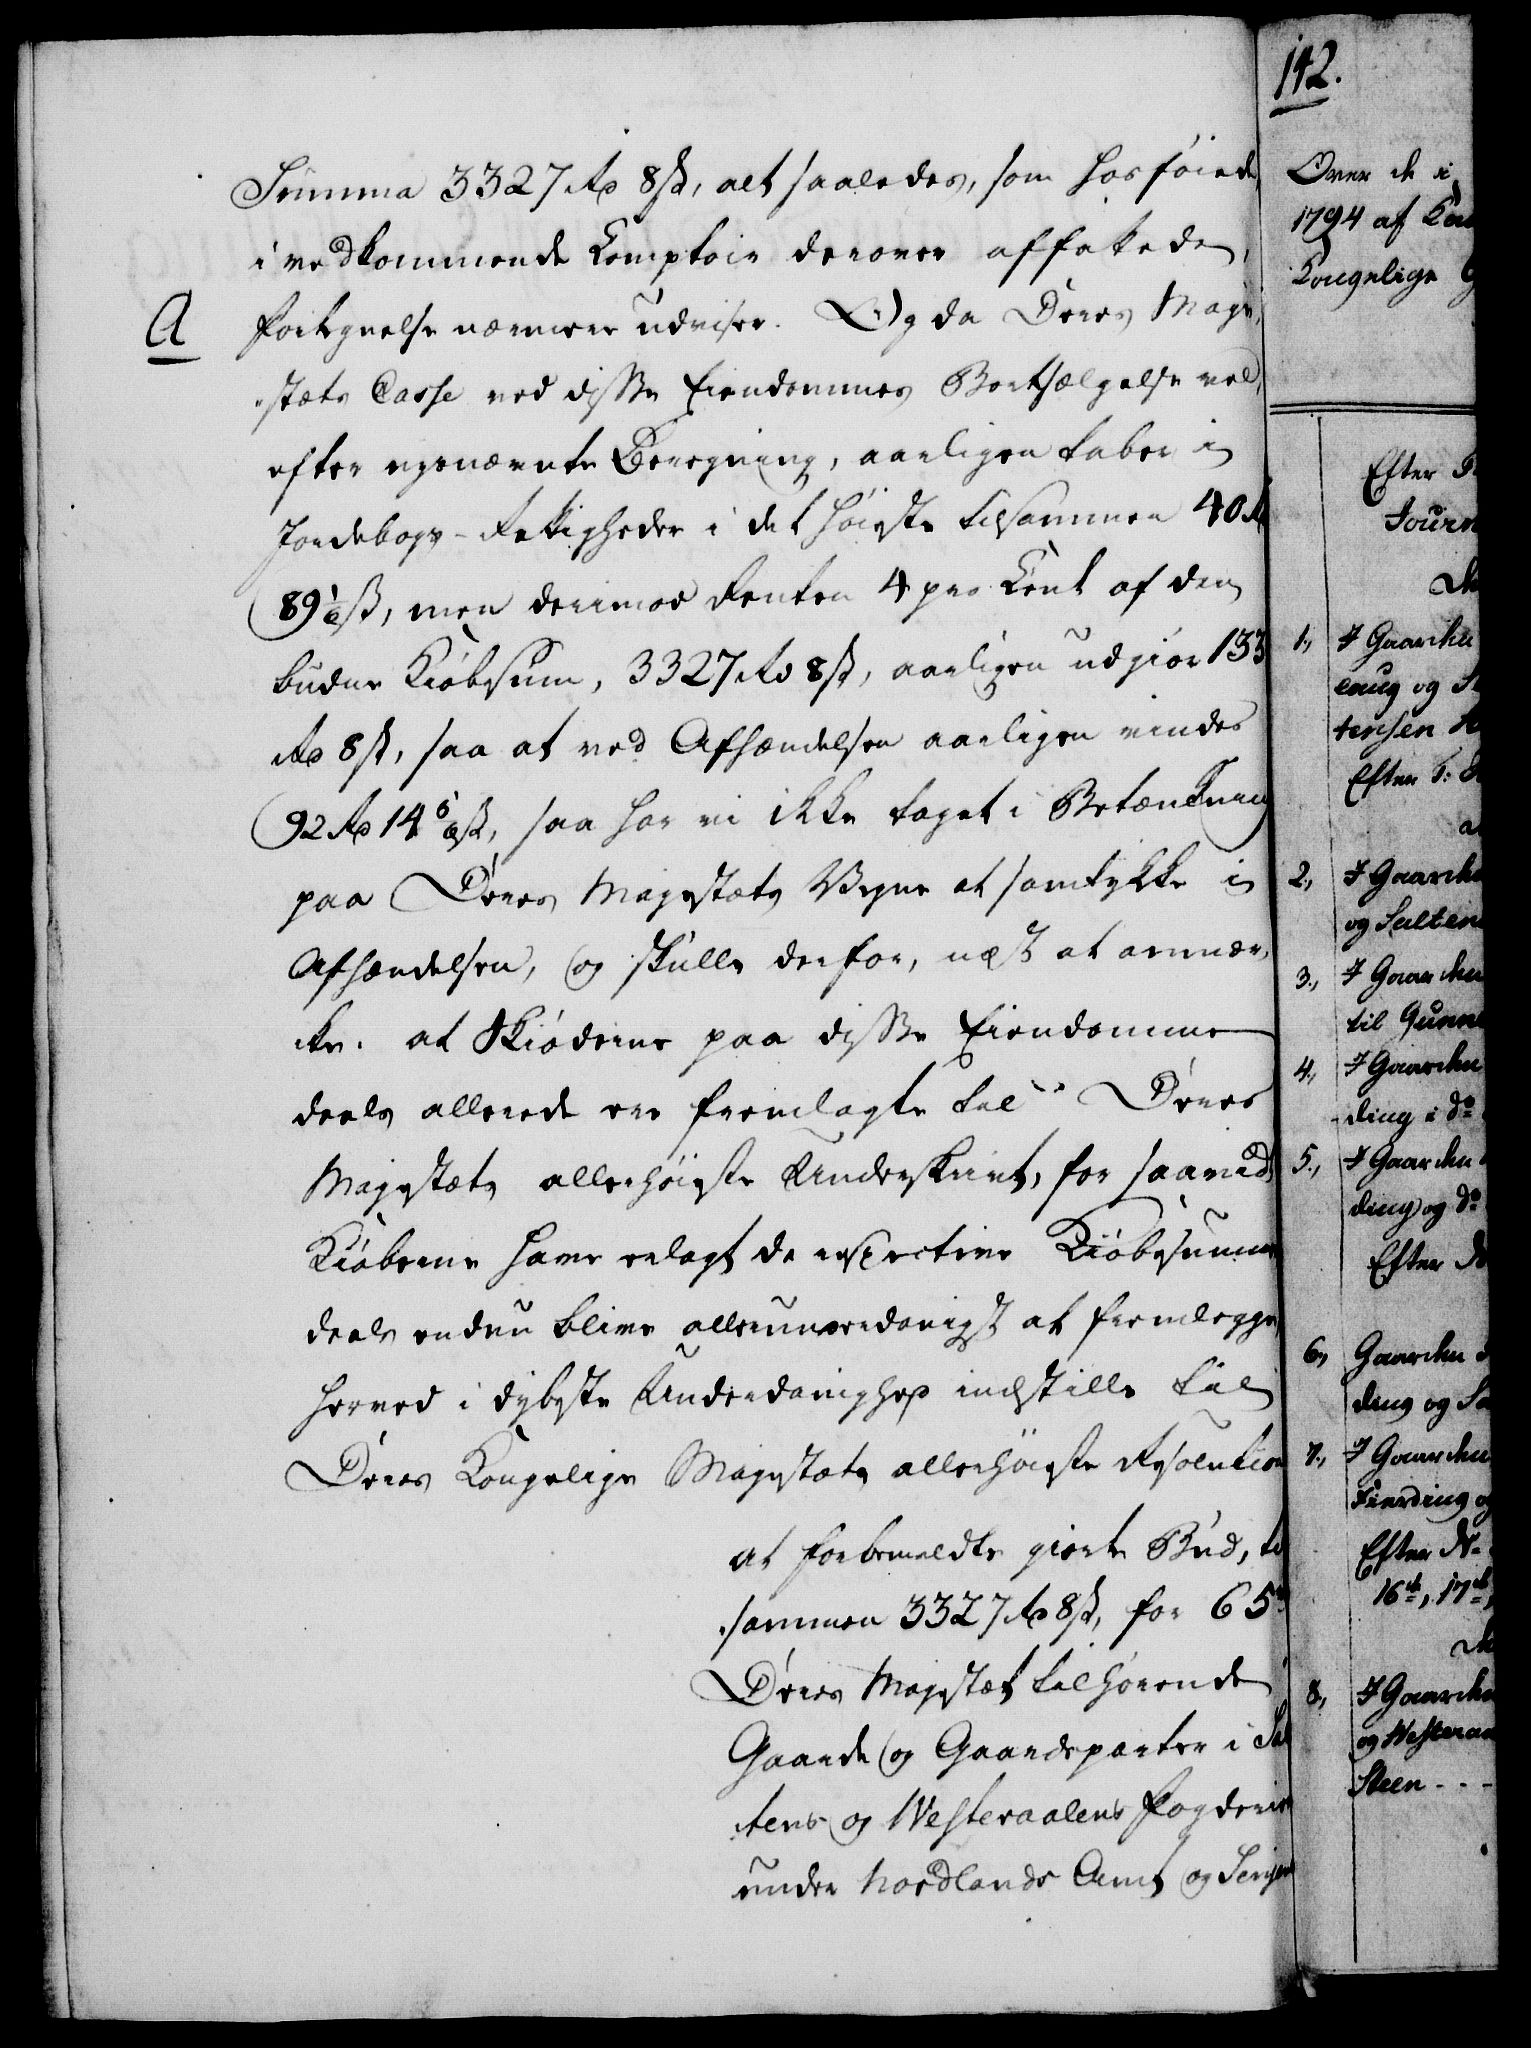 Summa 3327 Rd 8 ß, alt saaledes, som hosføiede
i vedkommende Comptoir derover affatede
A
Fortegnelse nærmere udviser. Og da Deres Maje-
stæts Casse ved disse Eiendommes Bortsælgelse vel,
efter ergnævnte Beregning, aarligen taber i
Jordebogs-Rettigheder i det høieste tilsammen 40 Rd
89 1/6 ß, men derimod Renten 4 pro Cent af den
budne Kiøbesum, 3327 Rd 8 ß, aarligen udgiør 133
Rd 8 ß, saa at ved Afhændelsen aarligen vindes
92 Rd 14 5/6 ß, saa har vi ikke taget i Betænkning
paa Deres Majestæts Vegne at samtykke i
Afhændelsen, og skulle derfor, næst at anmær-
ke, at Skiøderne paa disse Eiendomme
deels allerede ere fremlagte til Deres
Majestæts allerhøieste Underskrivt, for saavidt
Kiøberne have erlagt de respective Kiøbesummer
deels endnu blive allerunderdanigst at fremlegge,
herved i dybeste Underdanighed indstille til
Deres Kongelige Majestæts allerhøieste Resolution
at forbemeldte giorte Bud, til
sammen 3327 Rd 8 ß, for 65
Deres Majestæt tilhørende
Gaarde og Gaardeparter i Sal
tens og Westeraalens Fogderier
under Nordlands Amt og Senjens
142.
Over de i
1794 af
Kongelige
Efter
Journ
1., I Gaarden
laug og
tensen
Efter
2., I Gaarden
og Salten
3., I Gaarden
til Gunn
4., I Gaarden
ding i do
5., I Gaarden
ding og do
Efter
6., Gaarden
ding og
7., I Gaarden
Fierding og
Efter
16de, 17de,
8., I Gaarden
og Westeraa
Steen - - -